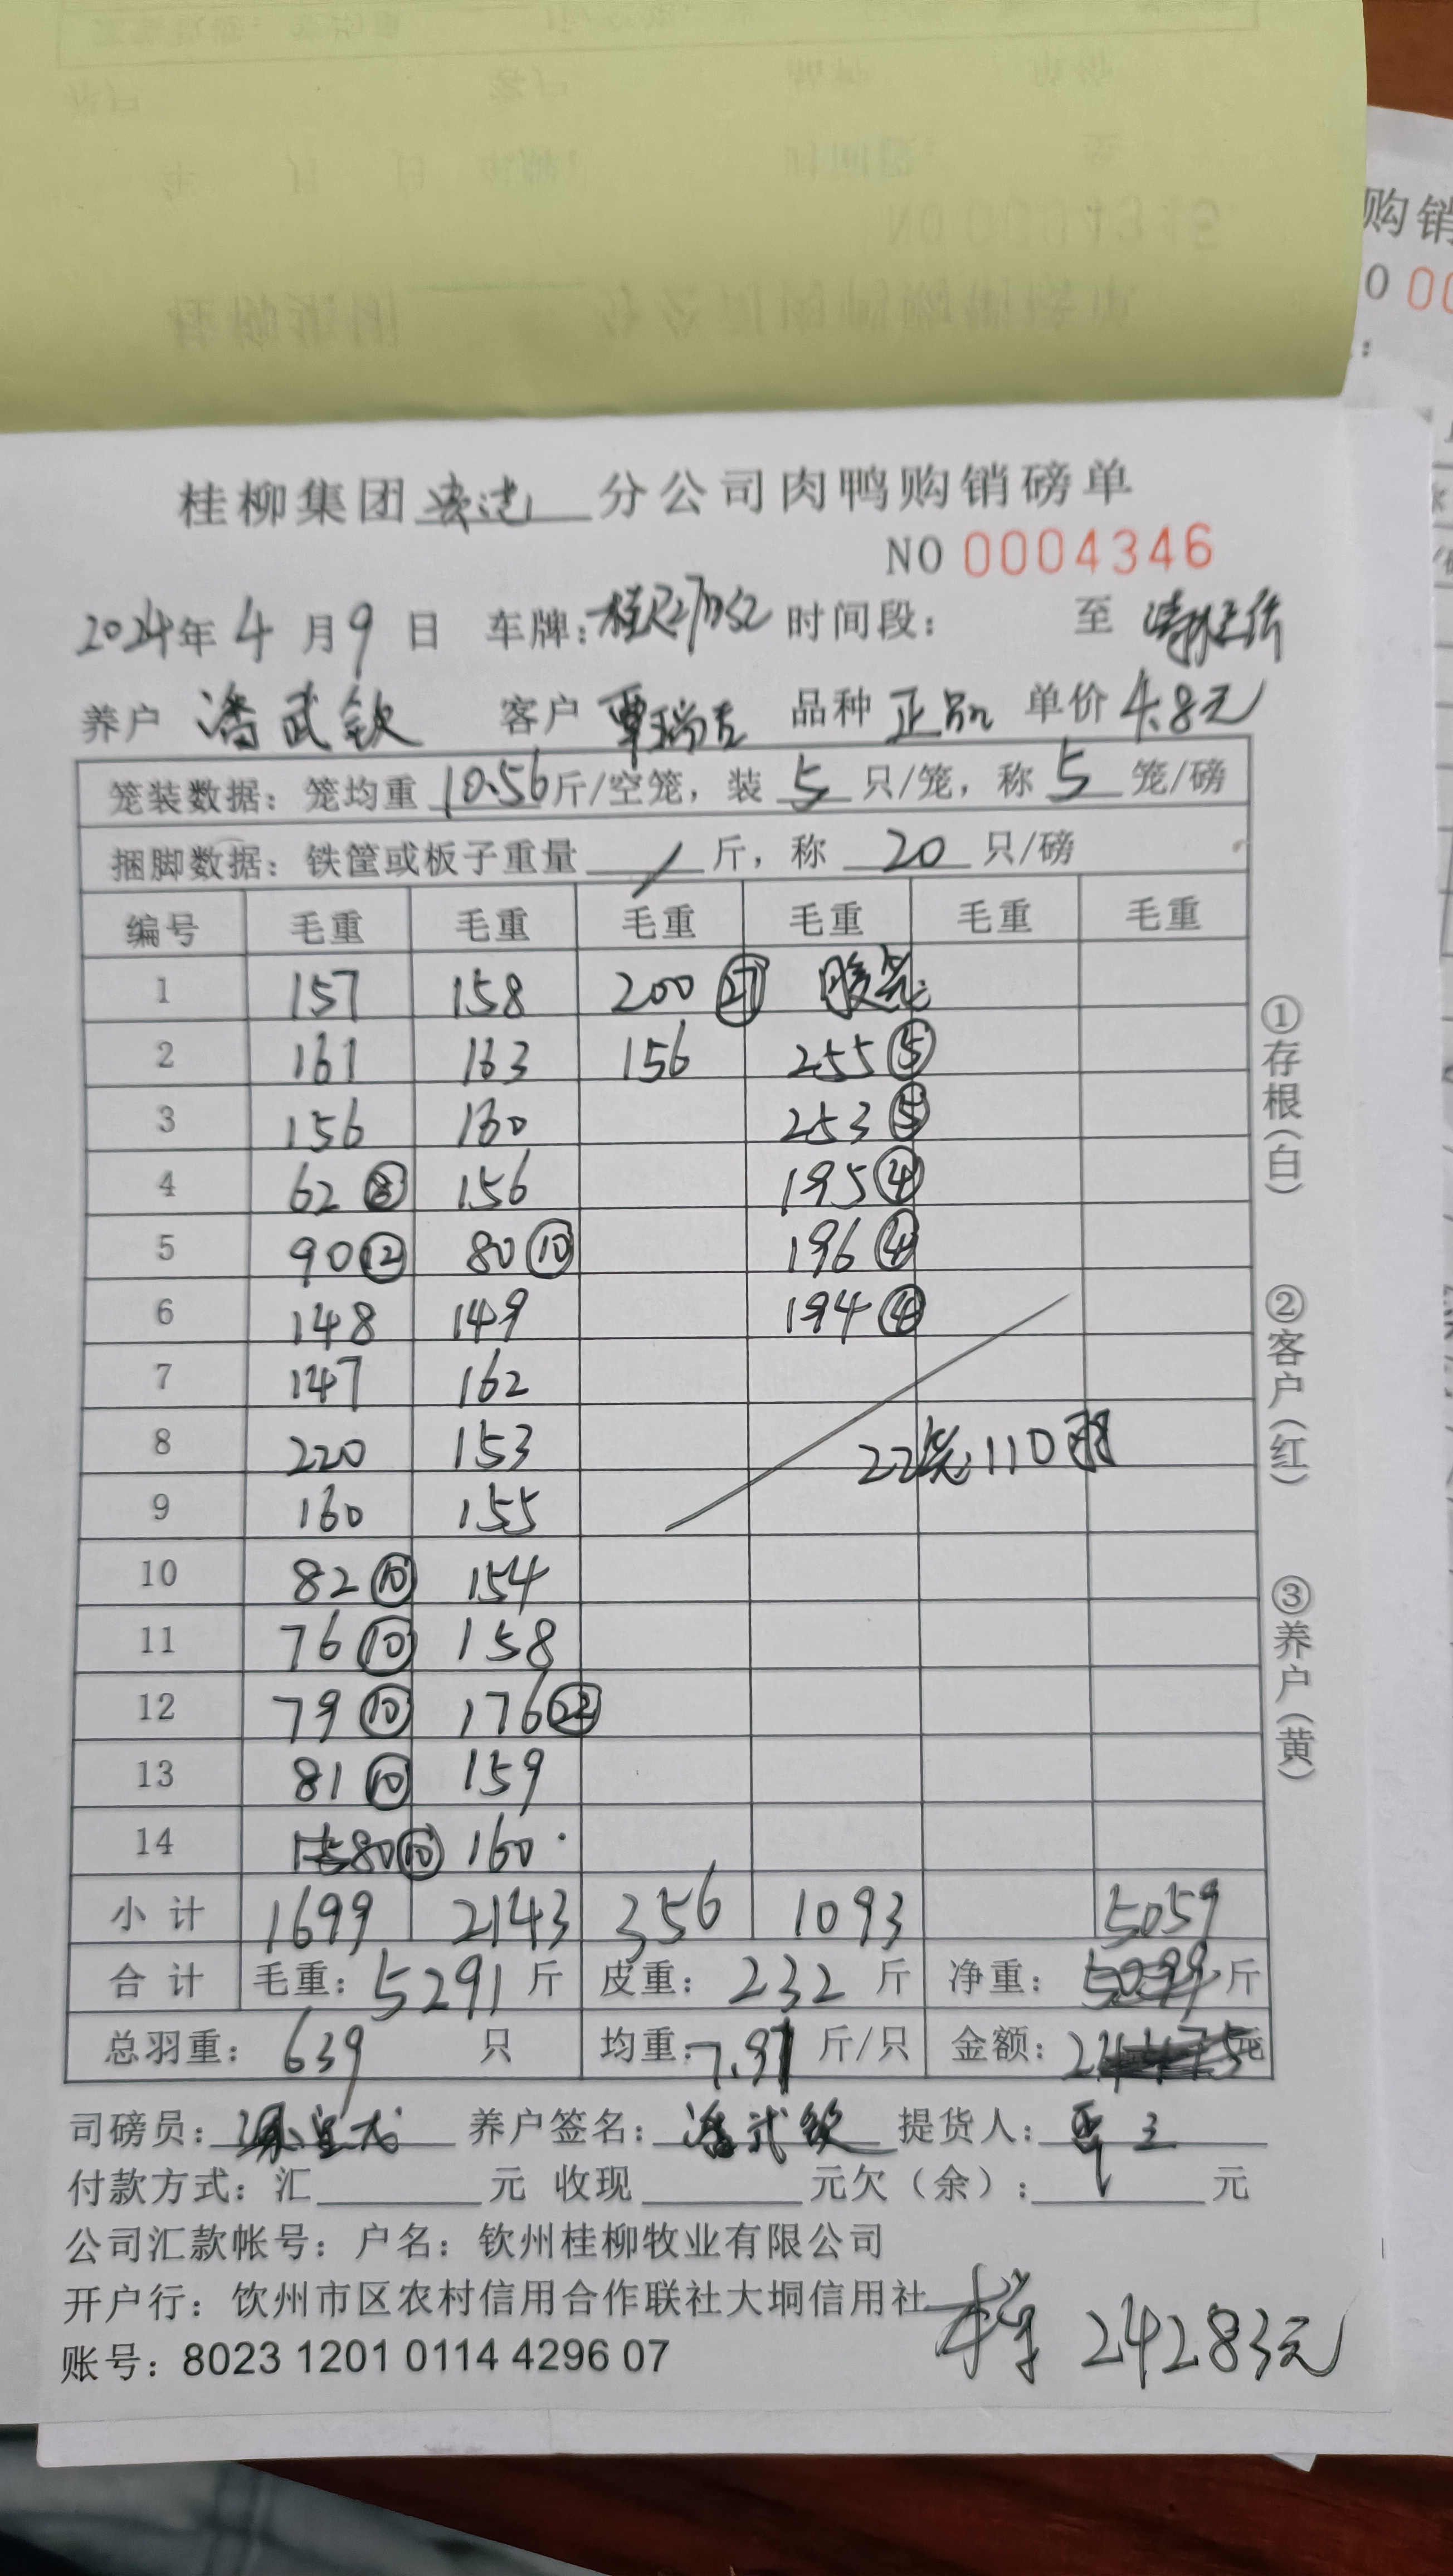 购销
0 00
桂柳集团 分公司肉鸭购销磅单
NO 0004346
2024年 4 月 9 日 车牌: 时间段: 至
养户 潘武钦 客户 覃瑞吉 品种 正品 单价 4.8元
笼装数据: 笼均重 10.56 斤/空笼, 装 5 只/笼, 称 5 笼/磅
捆脚数据: 铁筐或板子重量 / 斤, 称 20 只/磅
编号 毛重 毛重 毛重 毛重 毛重 毛重
1 157 158 200 ㉗
2 161 163 156 255 ⑤
3 156 160 253 ⑤
4 62 ⑧ 156 195 ④
5 90 ⑫ 80 ⑩ 196 ④
6 148 149 194 ④
7 147 162
8 220 153 22笼110羽
9 160 155
10 82 ⑩ 154
11 76 ⑩ 158
12 79 ⑩ 176 ㉒
13 81 ⑩ 159
14 80 ⑩ 160
小计 1699 2143 356 1093 5059
合计 毛重: 5291 斤 皮重: 232 斤 净重: 斤
总羽重: 639 只 均重: 7.91 斤/只 金额: 元
司磅员: 养户签名: 潘武钦 提货人:
付款方式: 汇 元 收现 元欠(余): 元
公司汇款帐号: 户名: 钦州桂柳牧业有限公司
开户行: 饮州市区农村信用合作联社大垌信用社
账号: 8023 1201 0114 4296 07
24283元
①存根(白)
②客户(红)
③养户(黄)